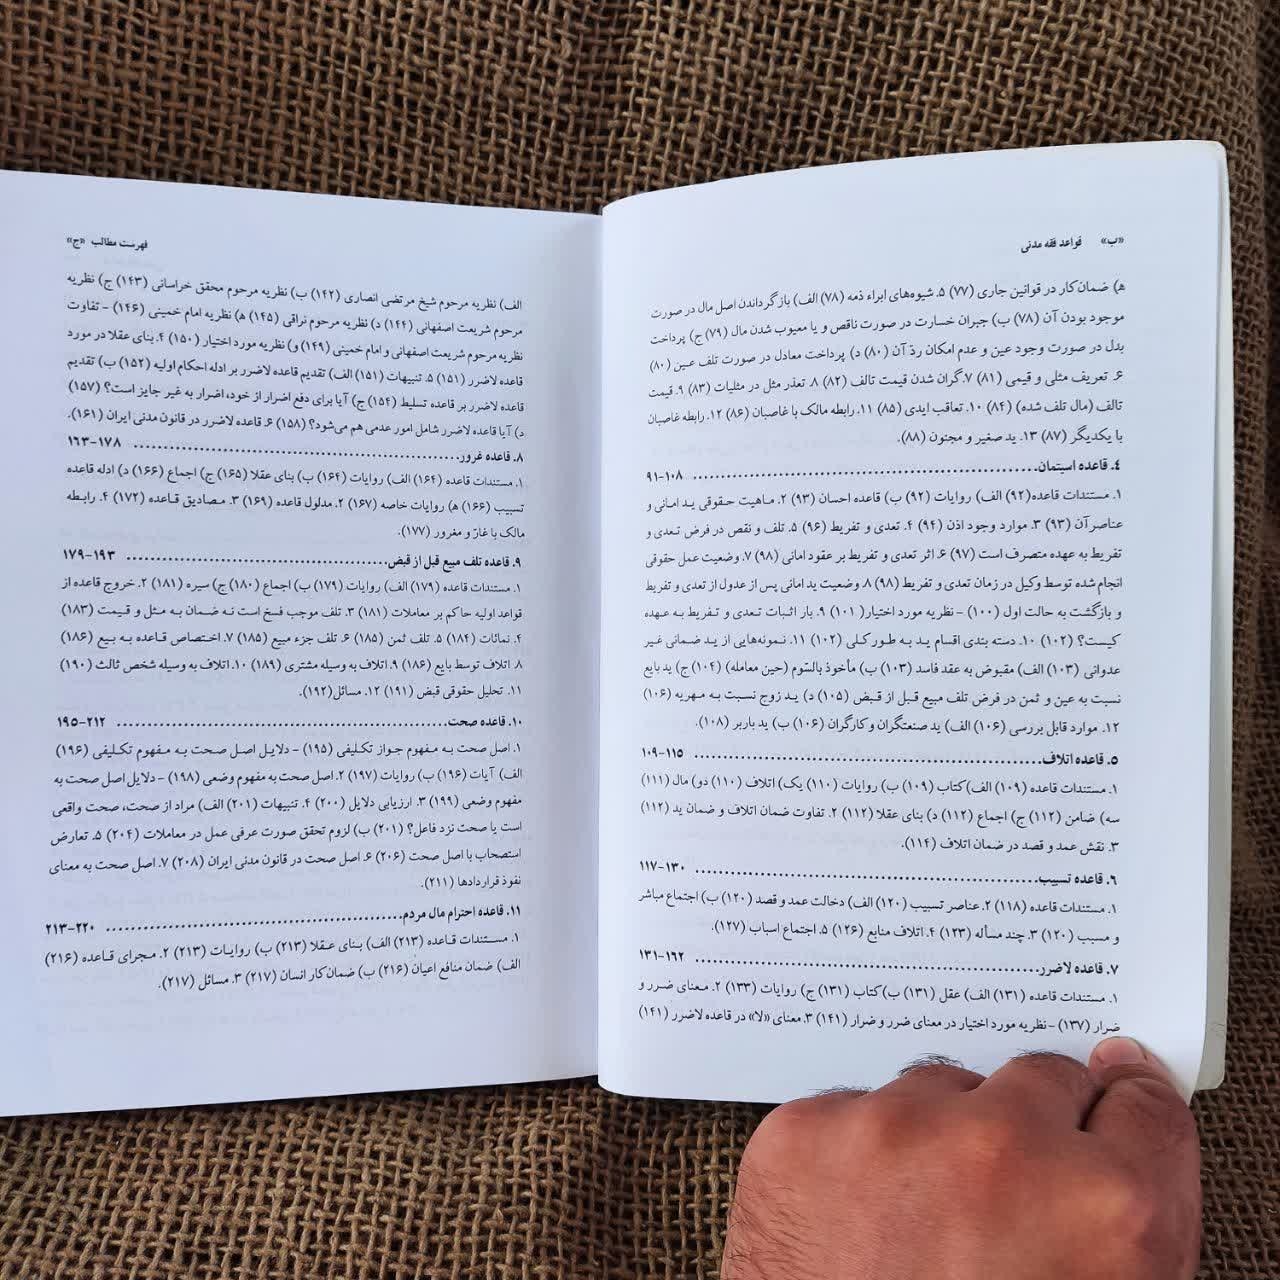 «ب» قواعد فقه مدنی
ه‍) ضمان کار در قوانین جاری (۷۷) ۵. شیوه‌های ابراء ذمه (۷۸) الف) بازگرداندن اصل مال در صورت
موجود بودن آن (۷۸) ب) جبران خسارت در صورت ناقص و یا معیوب شدن مال (۷۹) ج) پرداخت
بدل در صورت وجود عین و عدم امکان ردّ آن (۸۰) د) پرداخت معادل در صورت تلف عین (۸۰)
۶. تعریف مثلی و قیمی (۸۱) ۷. گران شدن قیمت تالف (۸۲) ۸. تعذر مثل در مثلیات (۸۳) ۹. قیمت
تالف (مال تلف شده) (۸۴) ۱۰. تعاقب ایدی (۸۵) ۱۱. رابطه مالک با غاصبان (۸۶) ۱۲. رابطه غاصبان
با یکدیگر (۸۷) ۱۳. ید صغیر و مجنون (۸۸).
۴. قاعده استیمان .......... ۹۱-۱۰۸
۱. مستندات قاعده (۹۲) الف) روایات (۹۲) ب) قاعده احسان (۹۳) ۲. ماهیت حقوقی ید امانی و
عناصر آن (۹۳) ۳. موارد وجود اذن (۹۴) ۴. تعدی و تفریط (۹۶) ۵. تلف و نقص در فرض تعدی و
تفریط به عهده متصرف است (۹۷) ۶. اثر تعدی و تفریط بر عقود امانی (۹۸) ۷. وضعیت عمل حقوقی
انجام شده توسط وکیل در زمان تعدی و تفریط (۹۸) ۸. وضعیت ید امانی پس از عدول از تعدی و تفریط
و بازگشت به حالت اول (۱۰۰) - نظریه مورد اختیار (۱۰۱) ۹. بار اثبات تعدی و تفریط به عهده
کیست؟ (۱۰۲) ۱۰. دسته بندی اقسام ید به طور کلی (۱۰۲) ۱۱. نمونه‌هایی از ید ضمانی غیر
عدوانی (۱۰۳) الف) مقبوض به عقد فاسد (۱۰۳) ب) مأخوذ بالسّوم (حین معامله) (۱۰۴) ج) ید بایع
نسبت به عین و ثمن در فرض تلف مبیع قبل از قبض (۱۰۵) د) ید زوج نسبت به مهریه (۱۰۶)
۱۲. موارد قابل بررسی (۱۰۶) الف) ید صنعتگران و کارگران (۱۰۶) ب) ید باربر (۱۰۸).
۵. قاعده اتلاف .......... ۱۰۹-۱۱۵
۱. مستندات قاعده (۱۰۹) الف) کتاب (۱۰۹) ب) روایات (۱۱۰) یک) اتلاف (۱۱۰) دو) مال (۱۱۱)
سه) ضامن (۱۱۲) ج) اجماع (۱۱۲) د) بنای عقلا (۱۱۲) ۲. تفاوت ضمان اتلاف و ضمان ید (۱۱۲)
۳. نقش عمد و قصد در ضمان اتلاف (۱۱۴).
۶. قاعده تسبیب .......... ۱۱۷-۱۳۰
۱. مستندات قاعده (۱۱۸) ۲. عناصر تسبیب (۱۲۰) الف) دخالت عمد و قصد (۱۲۰) ب) اجتماع مباشر
و مسبب (۱۲۰) ۳. چند مسأله (۱۲۳) ۴. اتلاف منافع (۱۲۶) ۵. اجتماع اسباب (۱۲۷).
۷. قاعده لاضرر .......... ۱۳۱-۱۶۲
۱. مستندات قاعده (۱۳۱) الف) عقل (۱۳۱) ب) کتاب (۱۳۱) ج) روایات (۱۳۳) ۲. معنای ضرر و
ضرار (۱۳۷) - نظریه مورد اختیار در معنای ضرر و ضرار (۱۴۱) ۳. معنای «لا» در قاعده لاضرر (۱۴۱)
فهرست مطالب «ج»
الف) نظریه مرحوم شیخ مرتضی انصاری (۱۴۲) ب) نظریه مرحوم محقق خراسانی (۱۴۳) ج) نظریه
مرحوم شریعت اصفهانی (۱۴۴) د) نظریه مرحوم نراقی (۱۴۵) ه‍) نظریه امام خمینی (۱۴۶) - تفاوت
نظریه مرحوم شریعت اصفهانی و امام خمینی (۱۴۹) و) نظریه مورد اختیار (۱۵۰) ۴. بنای عقلا در مورد
قاعده لاضرر (۱۵۱) ۵. تنبیهات (۱۵۱) الف) تقدیم قاعده لاضرر بر ادله احکام اولیه (۱۵۲) ب) تقدیم
قاعده لاضرر بر قاعده تسلیط (۱۵۴) ج) آیا برای دفع اضرار از خود، اضرار به غیر جایز است؟ (۱۵۷)
د) آیا قاعده لاضرر شامل امور عدمی هم می‌شود؟ (۱۵۸) ۶. قاعده لاضرر در قانون مدنی ایران (۱۶۱).
۸. قاعده غرور .......... ۱۶۳-۱۷۸
۱. مستندات قاعده (۱۶۴) الف) روایات (۱۶۴) ب) بنای عقلا (۱۶۵) ج) اجماع (۱۶۶) د) ادله قاعده
تسبیب (۱۶۶) ه‍) روایات خاصه (۱۶۷) ۲. مدلول قاعده (۱۶۹) ۳. مصادیق قاعده (۱۷۲) ۴. رابطه
مالک با غارّ و مغرور (۱۷۷).
۹. قاعده تلف مبیع قبل از قبض .......... ۱۷۹-۱۹۳
۱. مستندات قاعده (۱۷۹) الف) روایات (۱۷۹) ب) اجماع (۱۸۰) ج) سیره (۱۸۱) ۲. خروج قاعده از
قواعد اولیه حاکم بر معاملات (۱۸۱) ۳. تلف موجب فسخ است نه ضمان به مثل و قیمت (۱۸۳)
۴. نمائات (۱۸۴) ۵. تلف ثمن (۱۸۵) ۶. تلف جزء مبیع (۱۸۵) ۷. اختصاص قاعده به بیع (۱۸۶)
۸. اتلاف توسط بایع (۱۸۶) ۹. اتلاف به وسیله مشتری (۱۸۹) ۱۰. اتلاف به وسیله شخص ثالث (۱۹۰)
۱۱. تحلیل حقوقی قبض (۱۹۱) ۱۲. مسائل (۱۹۲).
۱۰. قاعده صحت .......... ۱۹۵-۲۱۲
۱. اصل صحت به مفهوم جواز تکلیفی (۱۹۵) - دلایل اصل صحت به مفهوم تکلیفی (۱۹۶)
الف) آیات (۱۹۶) ب) روایات (۱۹۷) ۲. اصل صحت به مفهوم وضعی (۱۹۸) - دلایل اصل صحت به
مفهوم وضعی (۱۹۹) ۳. ارزیابی دلایل (۲۰۰) ۴. تنبیهات (۲۰۱) الف) مراد از صحت، صحت واقعی
است یا صحت نزد فاعل؟ (۲۰۱) ب) لزوم تحقق صورت عرفی عمل در معاملات (۲۰۴) ۵. تعارض
استصحاب با اصل صحت (۲۰۶) ۶. اصل صحت در قانون مدنی ایران (۲۰۸) ۷. اصل صحت به معنای
نفوذ قراردادها (۲۱۱).
۱۱. قاعده احترام مال مردم .......... ۲۱۳-۲۲۰
۱. مستندات قاعده (۲۱۳) الف) بنای عقلا (۲۱۳) ب) روایات (۲۱۳) ۲. مجرای قاعده (۲۱۶)
الف) ضمان منافع اعیان (۲۱۶) ب) ضمان کار انسان (۲۱۷) ۳. مسائل (۲۱۷).